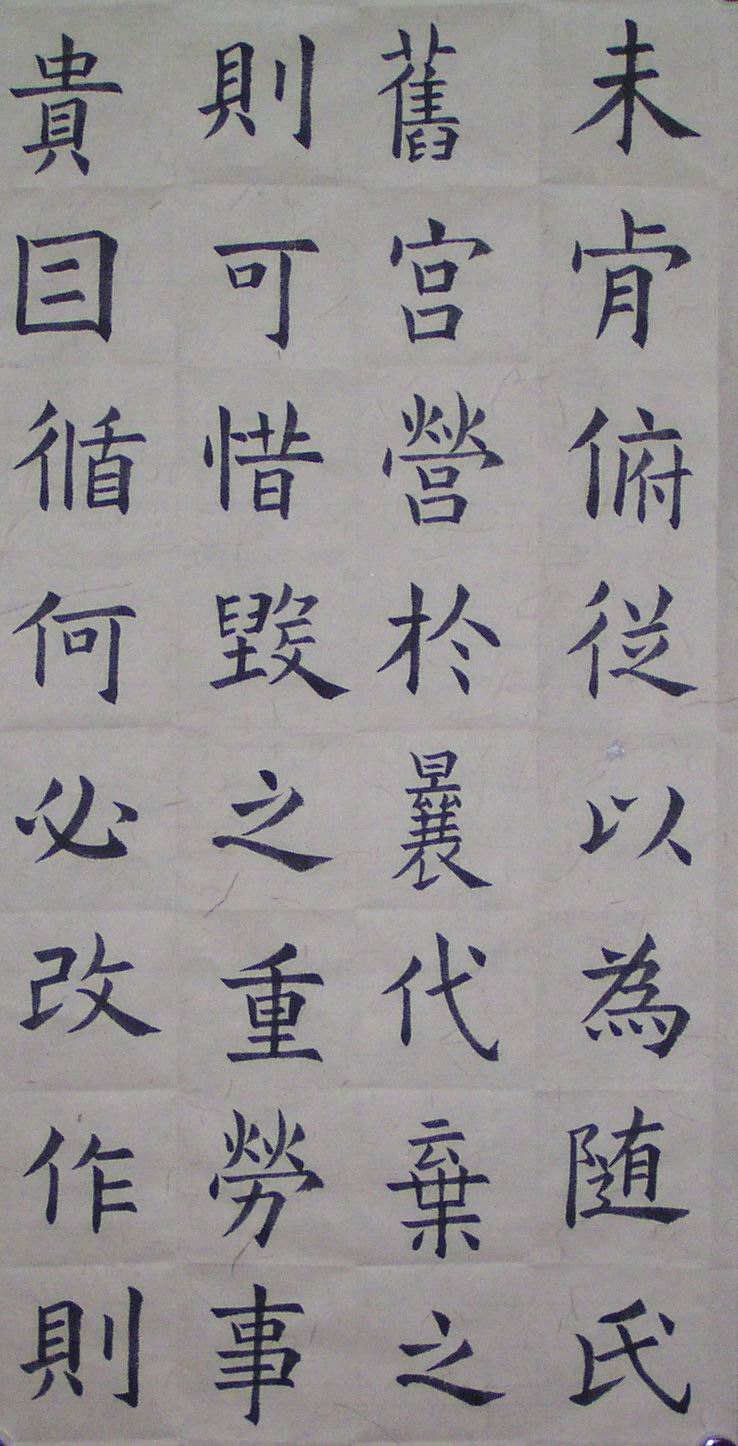 未肯俯従以為随氏
舊宮營於曩代棄之
則可惜毀之重勞事
貴因循何必改作則